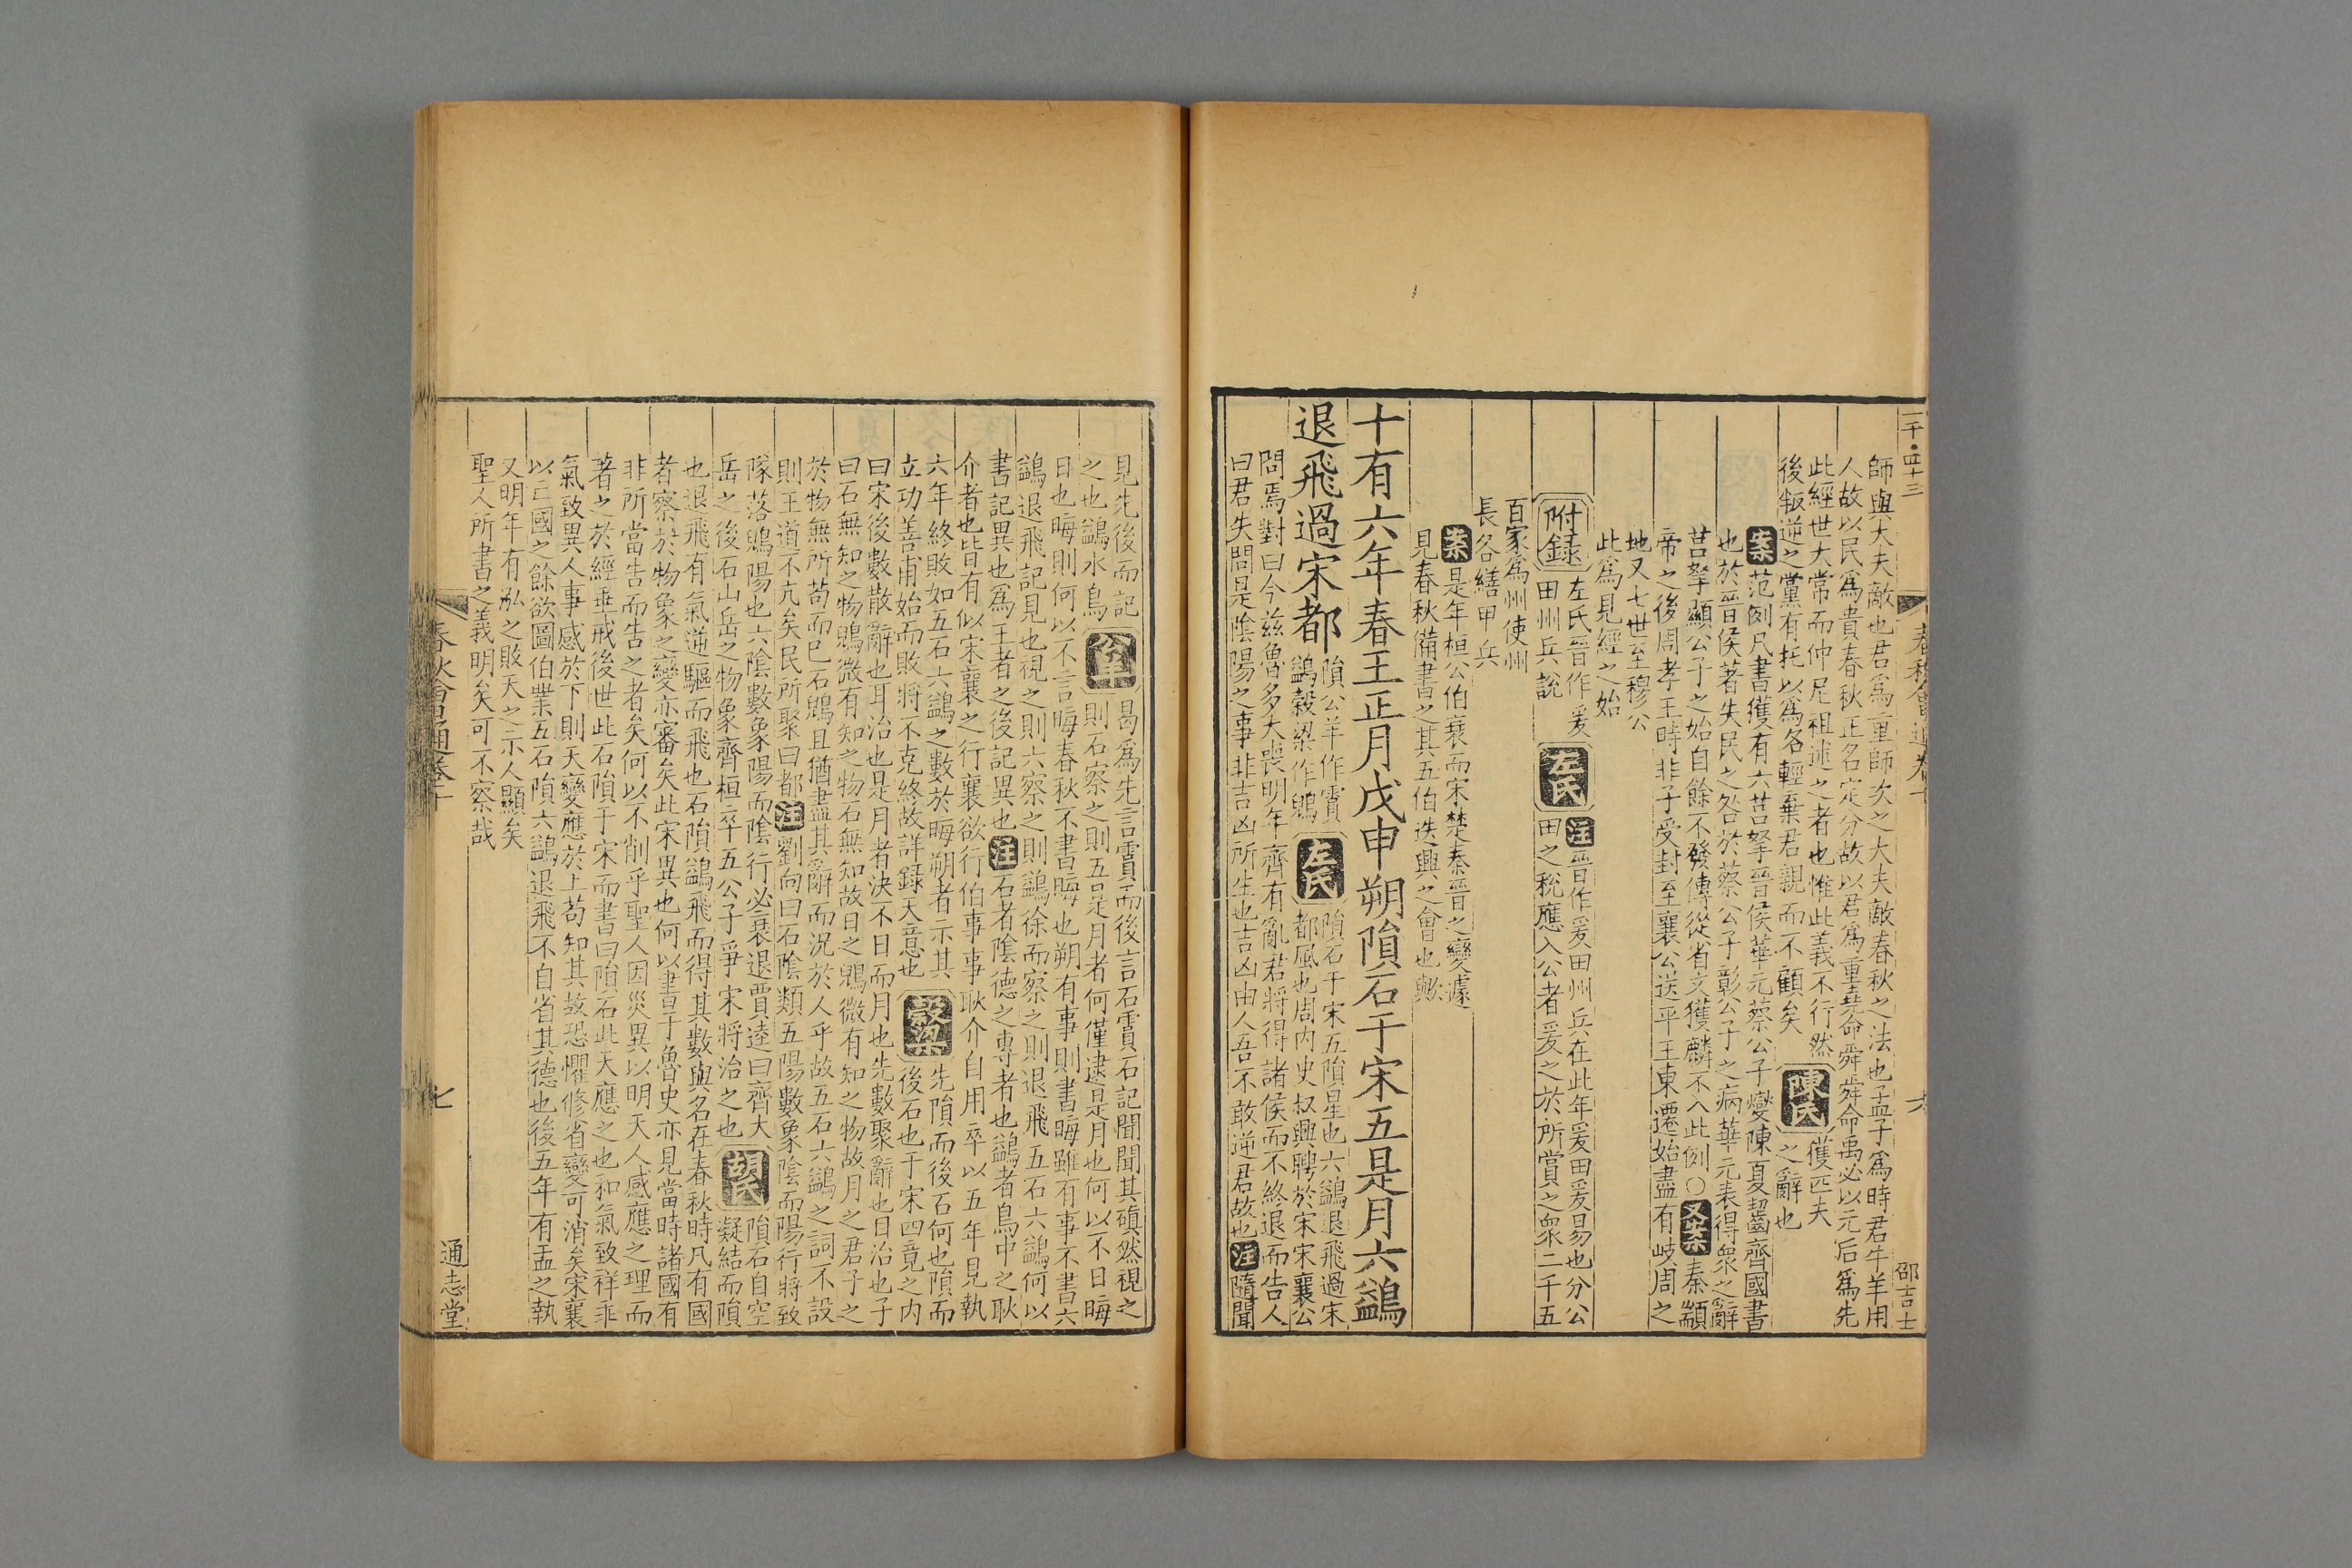 二千·四十三
春秋會通卷十
六
邵吉士
師與大夫敵也君爲重師次之大夫敵春秋之法也孟子爲時君牛羊用
人故以民爲貴春秋正名定分故以君爲重堯命舜舜命禹必以元后爲先
此經世大常而仲尼祖述之者也惟此義不行然
後叛逆之黨有托以爲名輕棄君親而不顧矣
陳氏
獲匹夫
之辭也
案范例凡書獲有六莒拏晉侯華元蔡公子燮陳夏齧齊國書
也於晉侯著失民之咎於蔡公子彰公子之病華元表得衆之辭
莒拏顯公子之始自餘不發傳從省文獲麟不入此例○又案秦顓
帝之後周孝王時非子受封至襄公送平王東遷始盡有岐周之
地又七世至穆公
此爲見經之始
附録
左氏晉作爰
田州兵說
左氏
注晉作爰田州兵在此年爰田爰易也分公
田之稅應入公者爰之於所賞之衆二千五
百家爲州使州
長各繕甲兵
案是年桓公伯衰而宋楚秦晉之變據
見春秋備書之其五伯迭興之會也歟
十有六年春王正月戊申朔隕石于宋五是月六鷁
退飛過宋都
隕公羊作霣
鷁穀梁作鶂
左氏
隕石于宋五隕星也六鷁退飛過宋
都風也周内史叔興聘於宋宋襄公
問焉對曰今兹魯多大喪明年齊有亂君將得諸侯而不終退而告人
曰君失問是陰陽之事非吉凶所生也吉凶由人吾不敢逆君故也注隨聞
見先後而記
之也鷁水鳥
公羊
曷爲先言霣而後言石霣石記聞聞其磌然視之
則石察之則五是月者何僅逮是月也何以不日晦
日也晦則何以不言晦春秋不書晦也朔有事則書晦雖有事不書六
鷁退飛記見也視之則六察之則鷁徐而察之則退飛五石六鷁何以
書記異也爲王者之後記異也注石者陰德之專者也鷁者鳥中之耿
介者也皆有似宋襄之行襄欲行伯事事耿介自用卒以五年見執
六年終敗如五石六鷁之數於晦朔者示其
立功善甫始而敗將不克終故詳録天意也
穀梁
先隕而後石何也隕而
後石也于宋四竟之内
曰宋後數散辭也耳治也是月者決不日而月也先數聚辭也目治也子
曰石無知之物鶂微有知之物石無知故日之鶂微有知之物故月之君子之
於物無所苟而已石鶂且猶盡其辭而況於人乎故五石六鷁之詞不設
則王道不亢矣民所聚曰都注劉向曰石陰類五陽數象陰而陽行將致
隊落鶂陽也六陰數象陽而陰行必衰退賈逵曰齊大
岳之後石山岳之物象齊桓卒五公子爭宋將治之也
胡氏
隕石自空
凝結而隕
也退飛有氣逆驅而飛也石隕鷁飛而得其數與名在春秋時凡有國
者察於物象之變亦審矣此宋異也何以書于魯史亦見當時諸國有
非所當告而告之者矣何以不削乎聖人因災異以明天人感應之理而
著之於經垂戒後世此石隕于宋而書曰隕石此天應之也和氣致祥乖
氣致異人事感於下則天變應於上苟知其故恐懼修省變可消矣宋襄
以亡國之餘欲圖伯業五石隕六鷁退飛不自省其德也後五年有盂之執
又明年有泓之敗天之示人顯矣
聖人所書之義明矣可不察哉
春秋會通卷十
七
通志堂